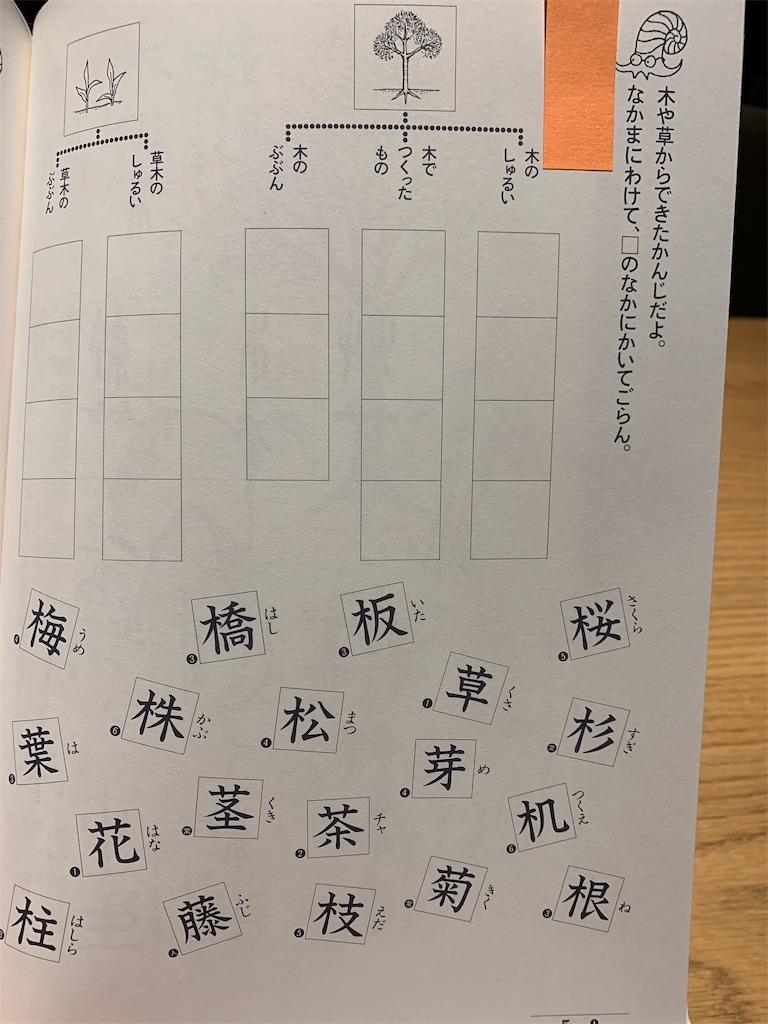 木や草からできたかんじだよ。
なかまにわけて、□のなかにかいてごらん。
木の
しゅるい
木で
つくった
もの
木の
ぶぶん
草木の
しゅるい
草木の
ぶぶん
桜 さくら ❺
板 いた ❸
橋 はし ❸
梅 うめ
草 くさ ❶
杉 すぎ
松 まつ ❹
株 かぶ ❻
芽 め ❹
葉 は ❸
机 つくえ ❻
茶 チャ ❷
茎 くき
花 はな ❶
根 ね ❸
菊 きく
枝 えだ ❺
藤 ふじ
柱 はしら